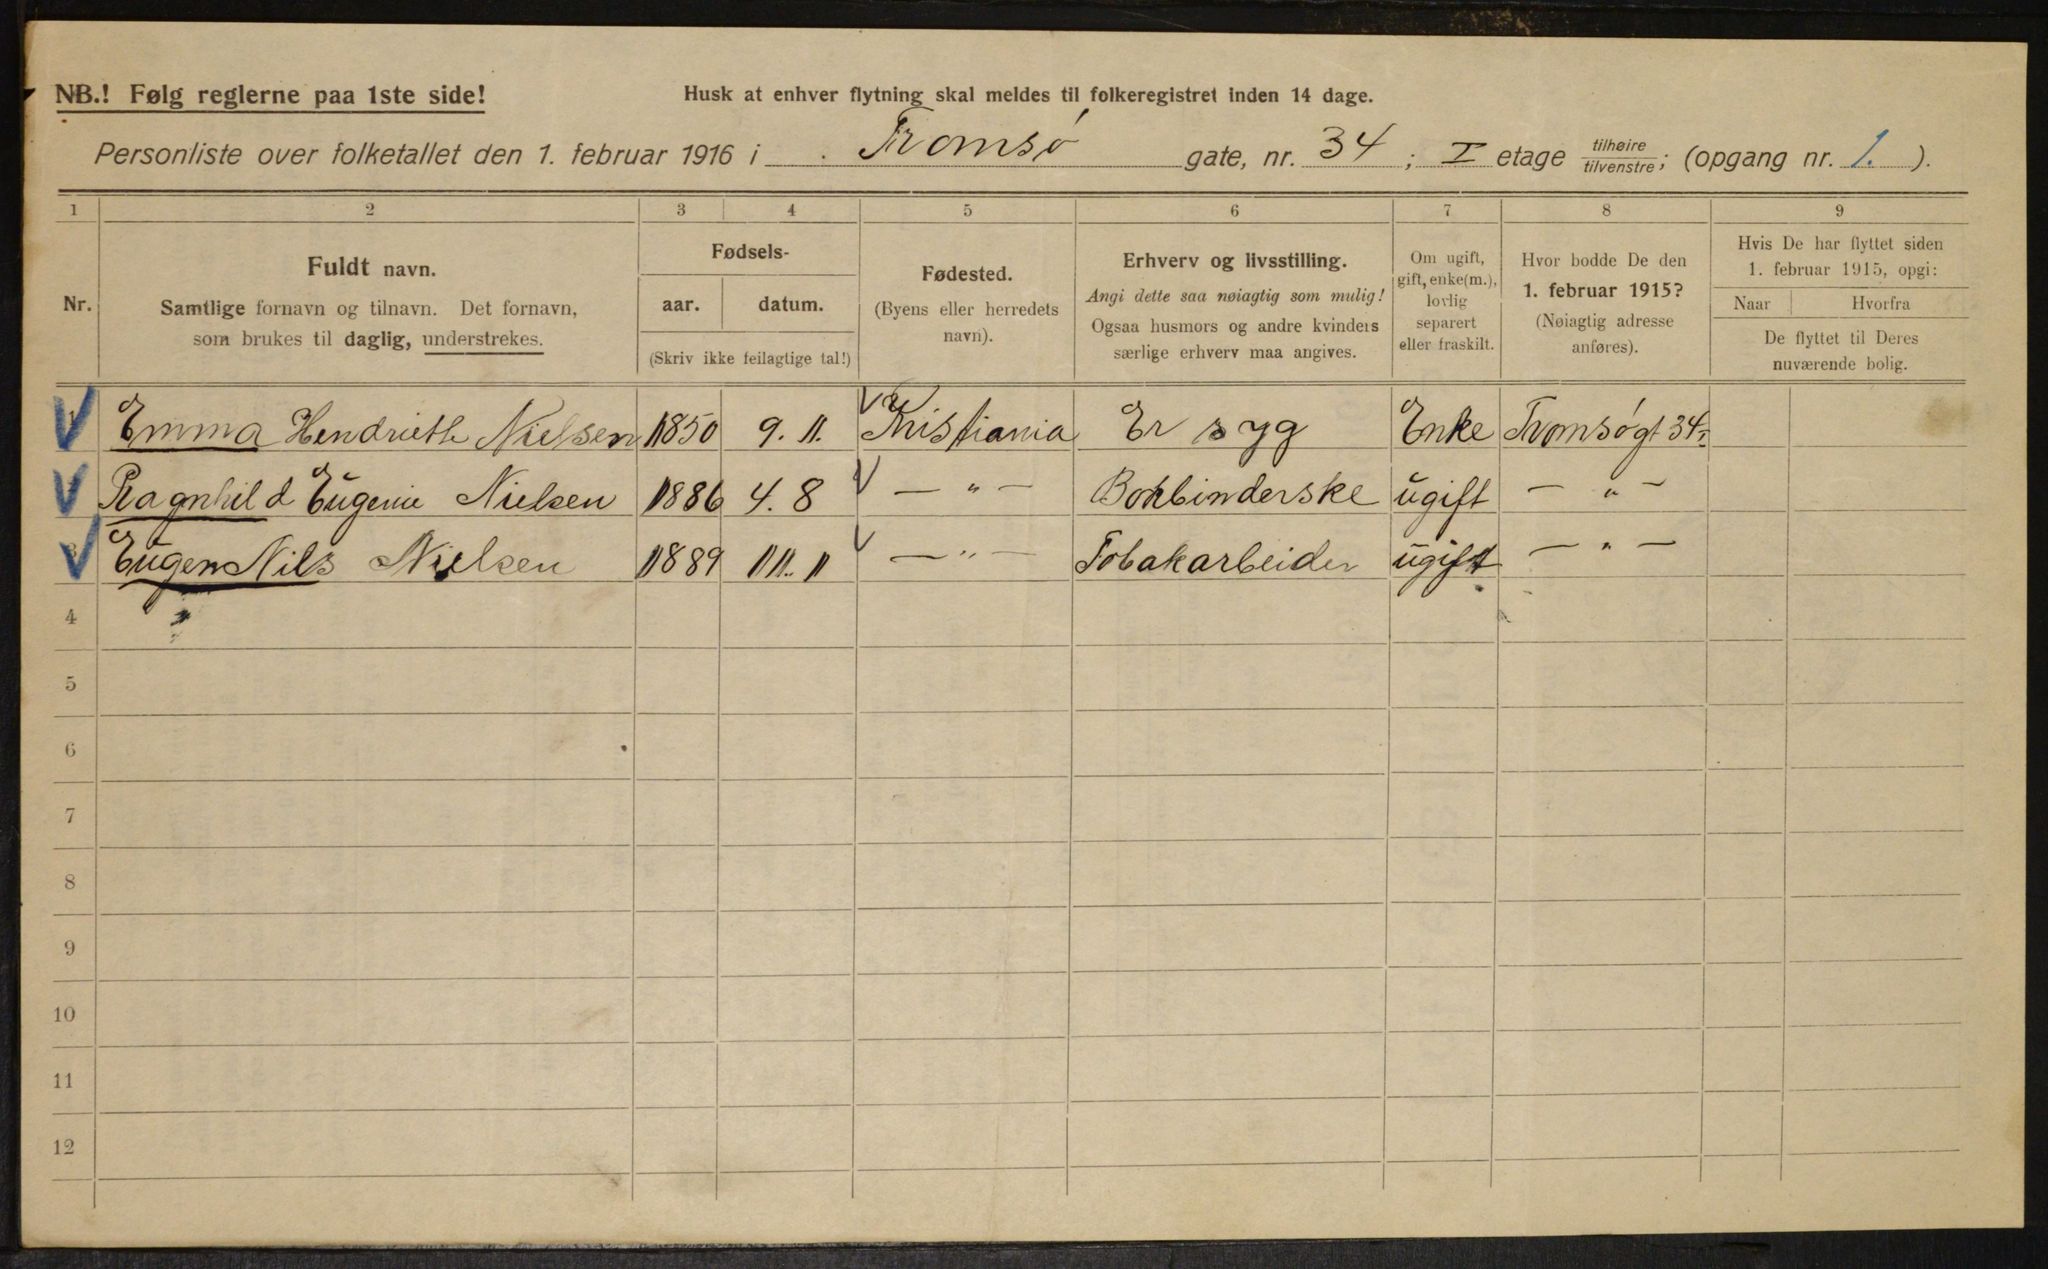 NB.! Følg reglerne paa 1ste side!
Husk at enhver flytning skal meldes til folkeregistret inden 14 dage.
Personliste over folketallet den 1. februar 1916 i Tromsø gate, nr. 34; I etage tilhøire/tilvenstre; (opgang nr. 1.).
1 2 3 4 5 6 7 8 9
Nr.
Fuldt navn.
Samtlige fornavn og tilnavn. Det fornavn,
som brukes til daglig, understrekes.
Fødsels-
aar. datum.
(Skriv ikke feilagtige tal!)
Fødested.
(Byens eller herredets
navn).
Erhverv og livsstilling.
Angi dette saa nøiagtig som mulig!
Ogsaa husmors og andre kvinders
særlige erhverv maa angives.
Om ugift,
gift, enke(m.),
lovlig
separert
eller fraskilt.
Hvor bodde De den
1. februar 1915?
(Nøiagtig adresse
anføres).
Hvis De har flyttet siden
1. februar 1915, opgi:
Naar Hvorfra
De flyttet til Deres
nuværende bolig.
Emma Hendriette Nielsen 1850 9. 11. Kristiania Er syg Enke Tromsøgt 34
Ragnhild Eugenie Nielsen 1886 4. 8 — " — Bokbinderske ugift — " —
3 Eugen Nils Nielsen 1889 — " — Tobakarbeider ugift — " —
4
5
6
7
8
9
10
11
12